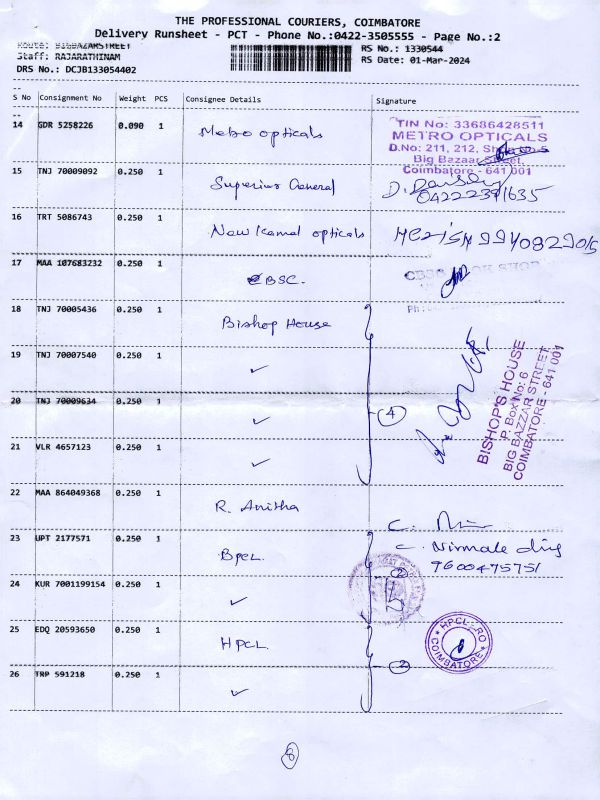 THE PROFESSIONAL COURIERS, COIMBATORE
Delivery Runsheet - PCT - Phone No.:0422-3505555 - Page No.:2
Route: BIGBAZARSTREET RS No.: 1330544
Staff: RAJARATHINAM RS Date: 01-Mar-2024
DRS No.: DCJB133054402
S No Consignment No Weight PCS Consignee Details Signature
14 GDR 5258226 0.090 1 Metro opticals
TIN No: 33686428511
METRO OPTICALS
D.No: 211, 212,
Big Bazaar Street,
Coimbatore - 641 001
15 TNJ 70009092 0.250 1 Superior General
16 TRT 5086743 0.250 1 New Kamal opticals
17 MAA 107683232 0.250 1 CBSC.
18 TNJ 70005436 0.250 1 Bishop House
19 TNJ 70007540 0.250 1 ✓
20 TNJ 70009634 0.250 1 ✓ 4
BISHOP'S HOUSE
P. Box No: 6
BIG BAZZAR STREET
COIMBATORE - 641 001
21 VLR 4657123 0.250 1 ✓
22 MAA 864049368 0.250 1 R. Anitha
23 UPT 2177571 0.250 1 BPCL C. Nirmala
9600475751
24 KUR 7001199154 0.250 1 ✓ 2
25 EDQ 20593650 0.250 1 HPCL
HPCL-RO
COIMBATORE
26 TRP 591218 0.250 1 ✓ 2
8